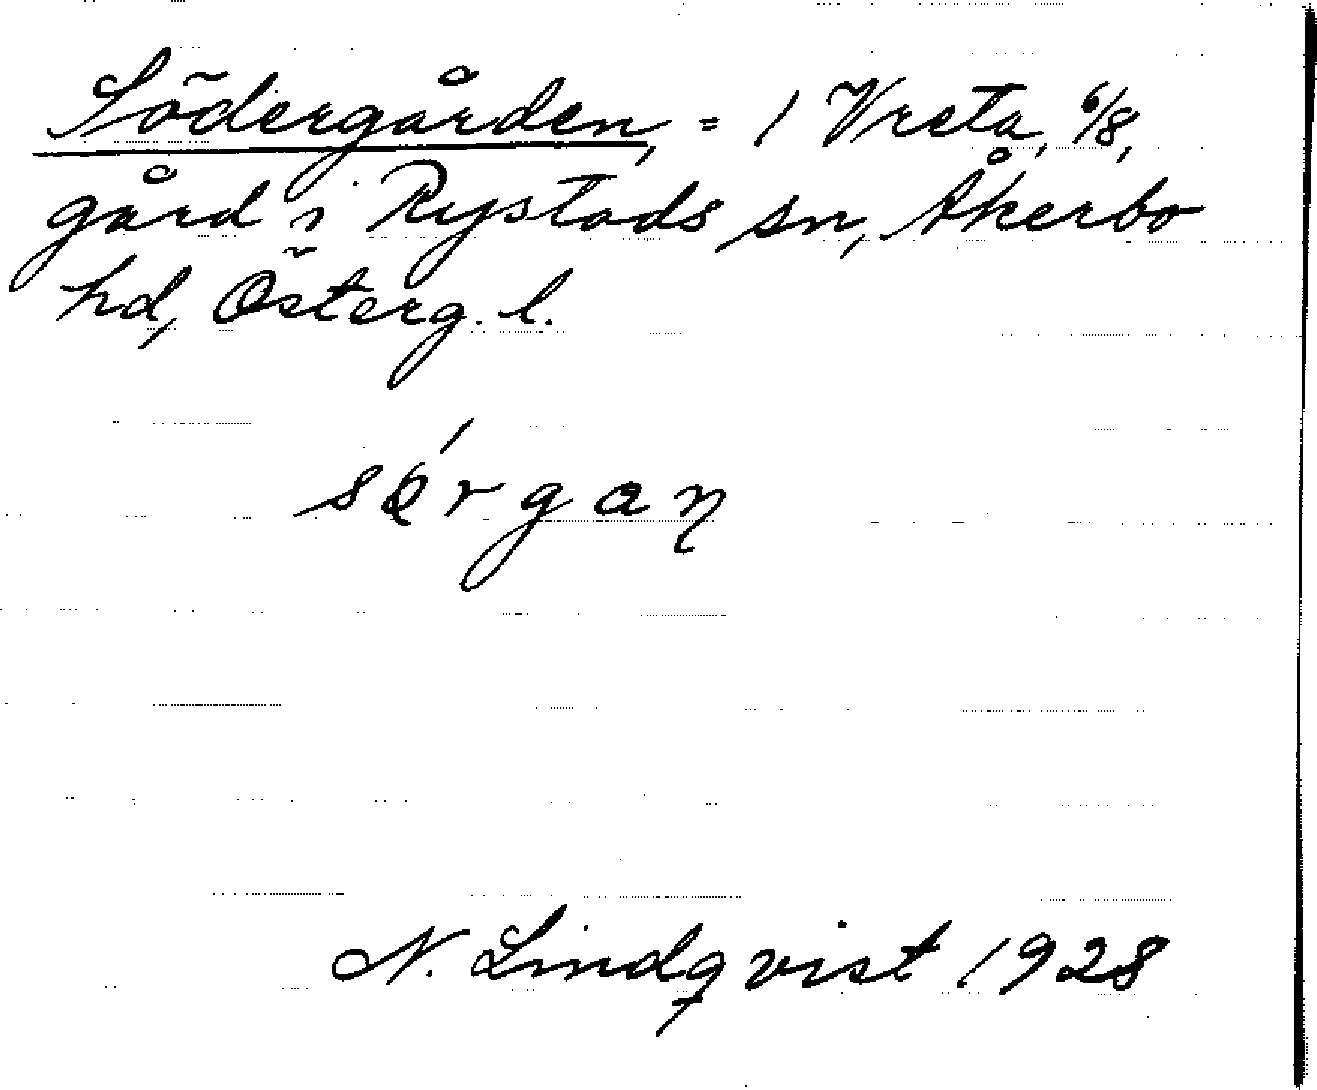 Södergården, = 1 Vreta, 6/8,
gård i Rystads sn, Åkerbo
hd, Österg. l.
N. Lindqvist 1928